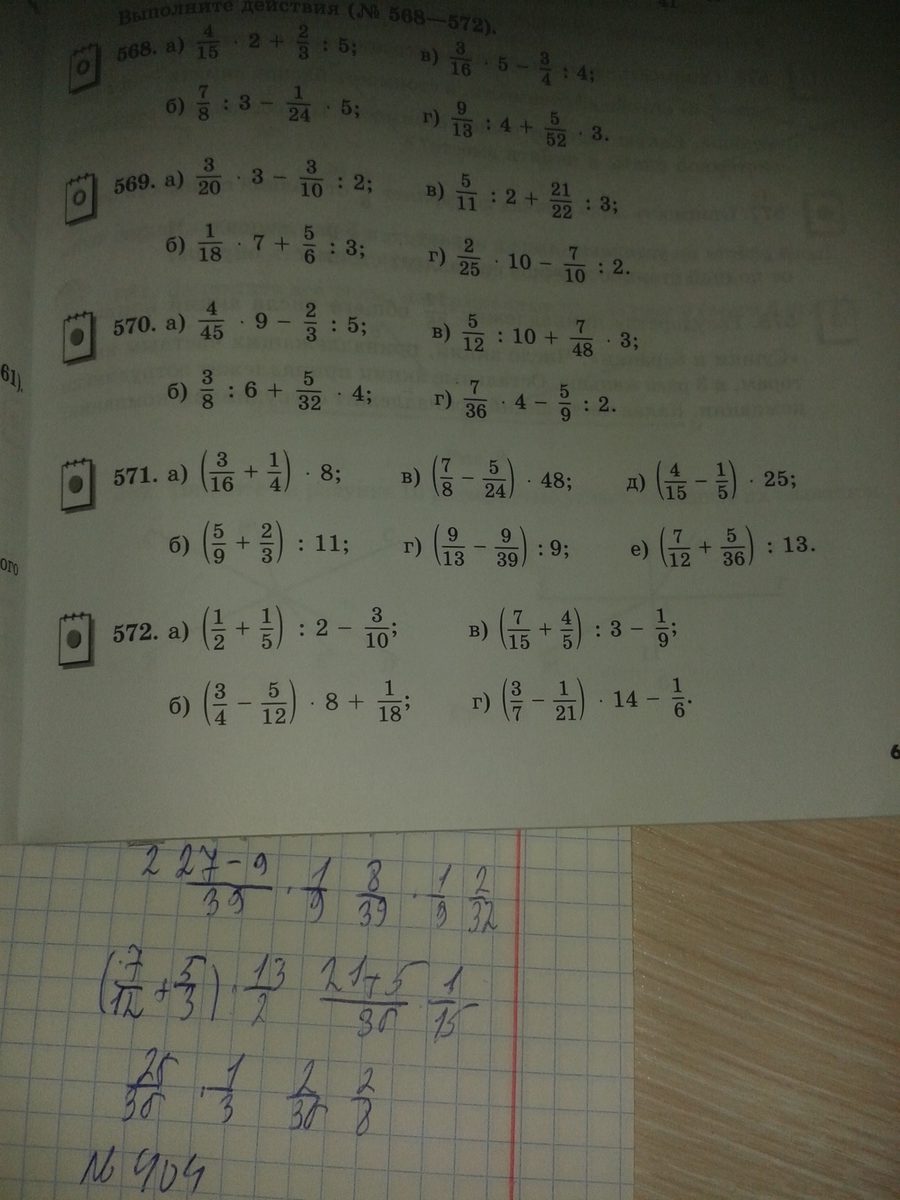 Выполните действия (№ 568—572).
568. а) 4/15 · 2 + 2/3 : 5; в) 3/16 · 5 − 3/4 : 4;
б) 7/8 : 3 − 1/24 · 5; г) 9/13 : 4 + 5/52 · 3.
569. а) 3/20 · 3 − 3/10 : 2; в) 5/11 : 2 + 21/22 : 3;
б) 1/18 · 7 + 5/6 : 3; г) 2/25 · 10 − 7/10 : 2.
570. а) 4/45 · 9 − 2/3 : 5; в) 5/12 : 10 + 7/48 · 3;
61).
б) 3/8 : 6 + 5/32 · 4; г) 7/36 · 4 − 5/9 : 2.
571. а) (3/16 + 1/4) · 8; в) (7/8 − 5/24) · 48; д) (4/15 − 1/5) · 25;
ого
б) (5/9 + 2/3) : 11; г) (9/13 − 9/39) : 9; е) (7/12 + 5/36) : 13.
572. а) (1/2 + 1/5) : 2 − 3/10; в) (7/15 + 4/5) : 3 − 1/9;
б) (3/4 − 5/12) · 8 + 1/18; г) (3/7 − 1/21) · 14 − 1/6.
6
2 27−9/39 · 1/9 8/39 · 1/9 2/32
(7/12 + 5/3) · 13/2 21+5/36 1/15
26/36 · 1/3 2/36 2/8
№ 404